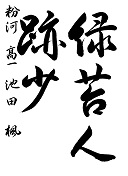 緑苔人
跡少
粉河高一 池田楓